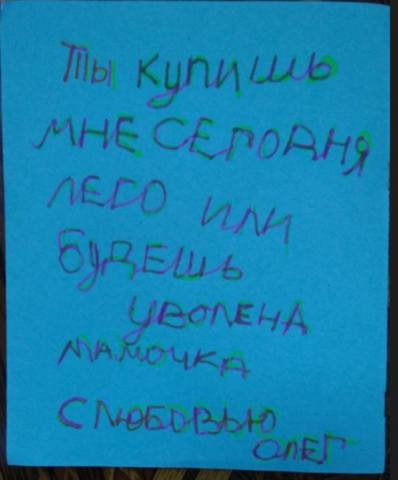 ТЫ КУПИШЬ
МНЕ СЕГОДНЯ
ЛЕГО ИЛИ
БУДЕШЬ
УВОЛЕНА
МАМОЧКА
С ЛЮБОВЬЮ
ОЛЕГ